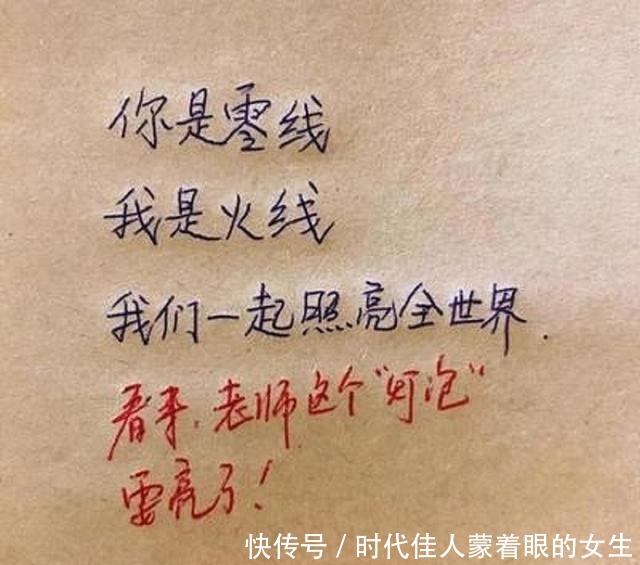 你是零线
我是火线
我们一起照亮全世界.
看来,老师这个"灯泡"
要亮了!
快传号/时代佳人蒙着眼的女生